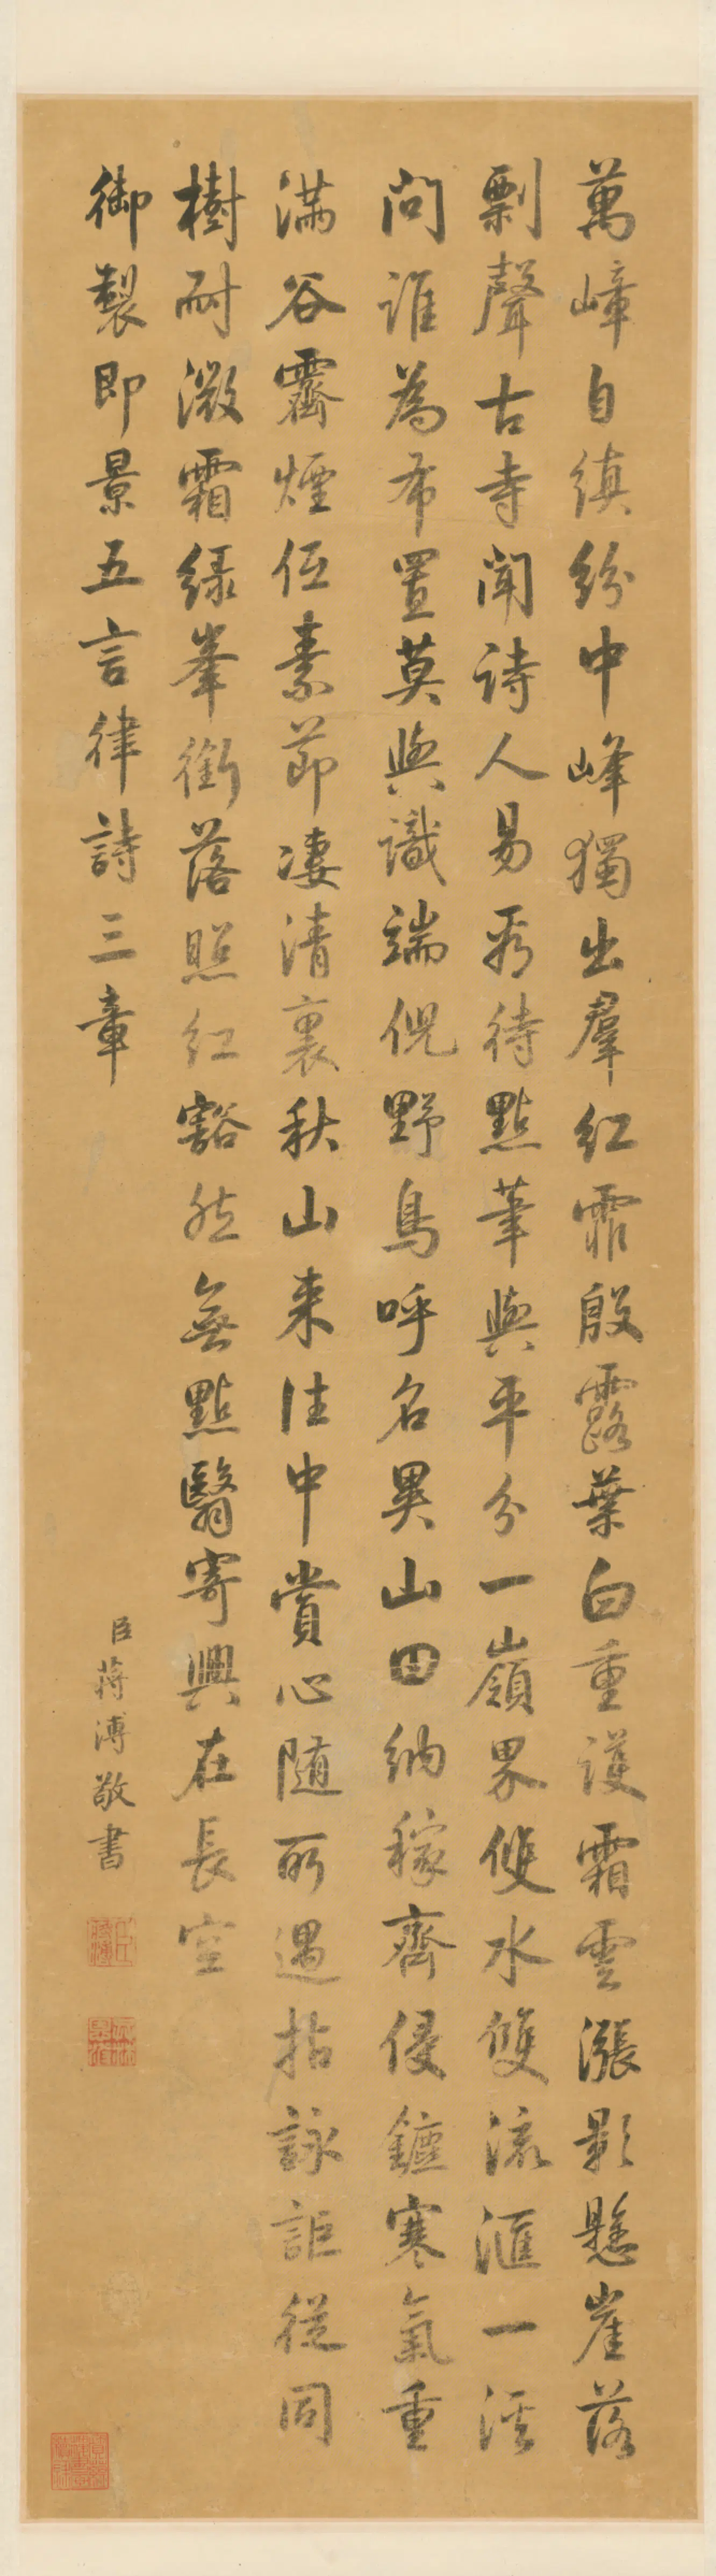 萬嶂自縝紛中峰獨出羣紅霏殷露葉白重護霜雲漲影懸崖落
剽聲古寺聞詩人易待點筆與平分一嶺界雙水雙流滙一溪
問誰為布置莫與識端倪野鳥呼名異山田納稼齊侵鑪寒氣重
滿谷霽煙低素節凄清裏秋山來往中賞心隨所遇拈詠詎從同
樹耐微霜綠峯銜落照紅豁然無點翳寄興在長空
御製即景五言律詩三章
臣蔣溥敬書
臣蔣溥